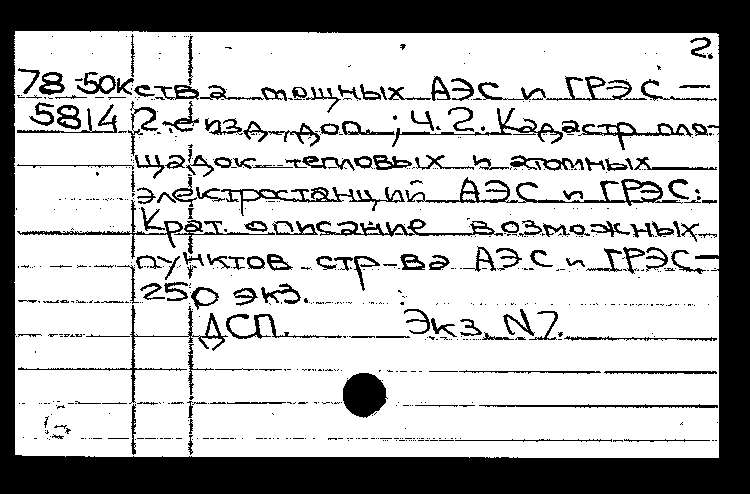 2.
78-50к ства мощных АЭС и ГРЭС.—
5814 2-е изд., доп. ; Ч. 2. Кадастр пло-
щадок тепловых и атомных
электростанций АЭС и ГРЭС:
Крат. описание возможных
пунктов стр-ва АЭС и ГРЭС.—
250 экз.
ДСП. Экз. N7.
6